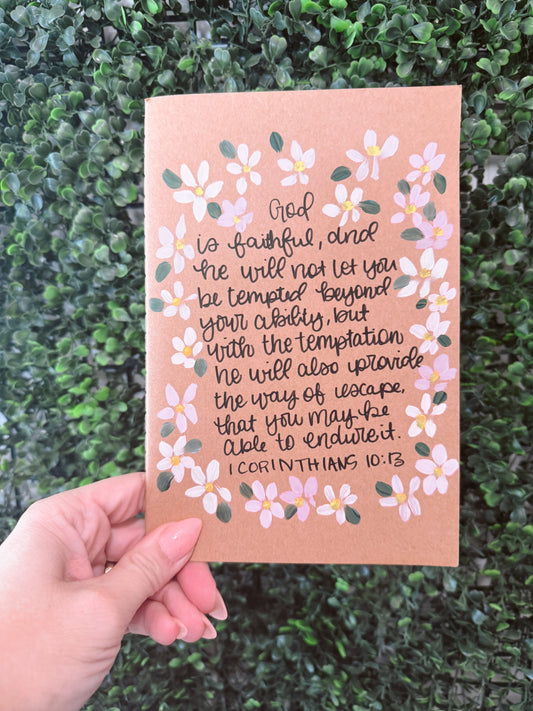 God
is faithful, and
he will not let you
be tempted beyond
your ability, but
with the temptation
he will also provide
the way of escape,
that you may be
able to endure it.
1 CORINTHIANS 10:13